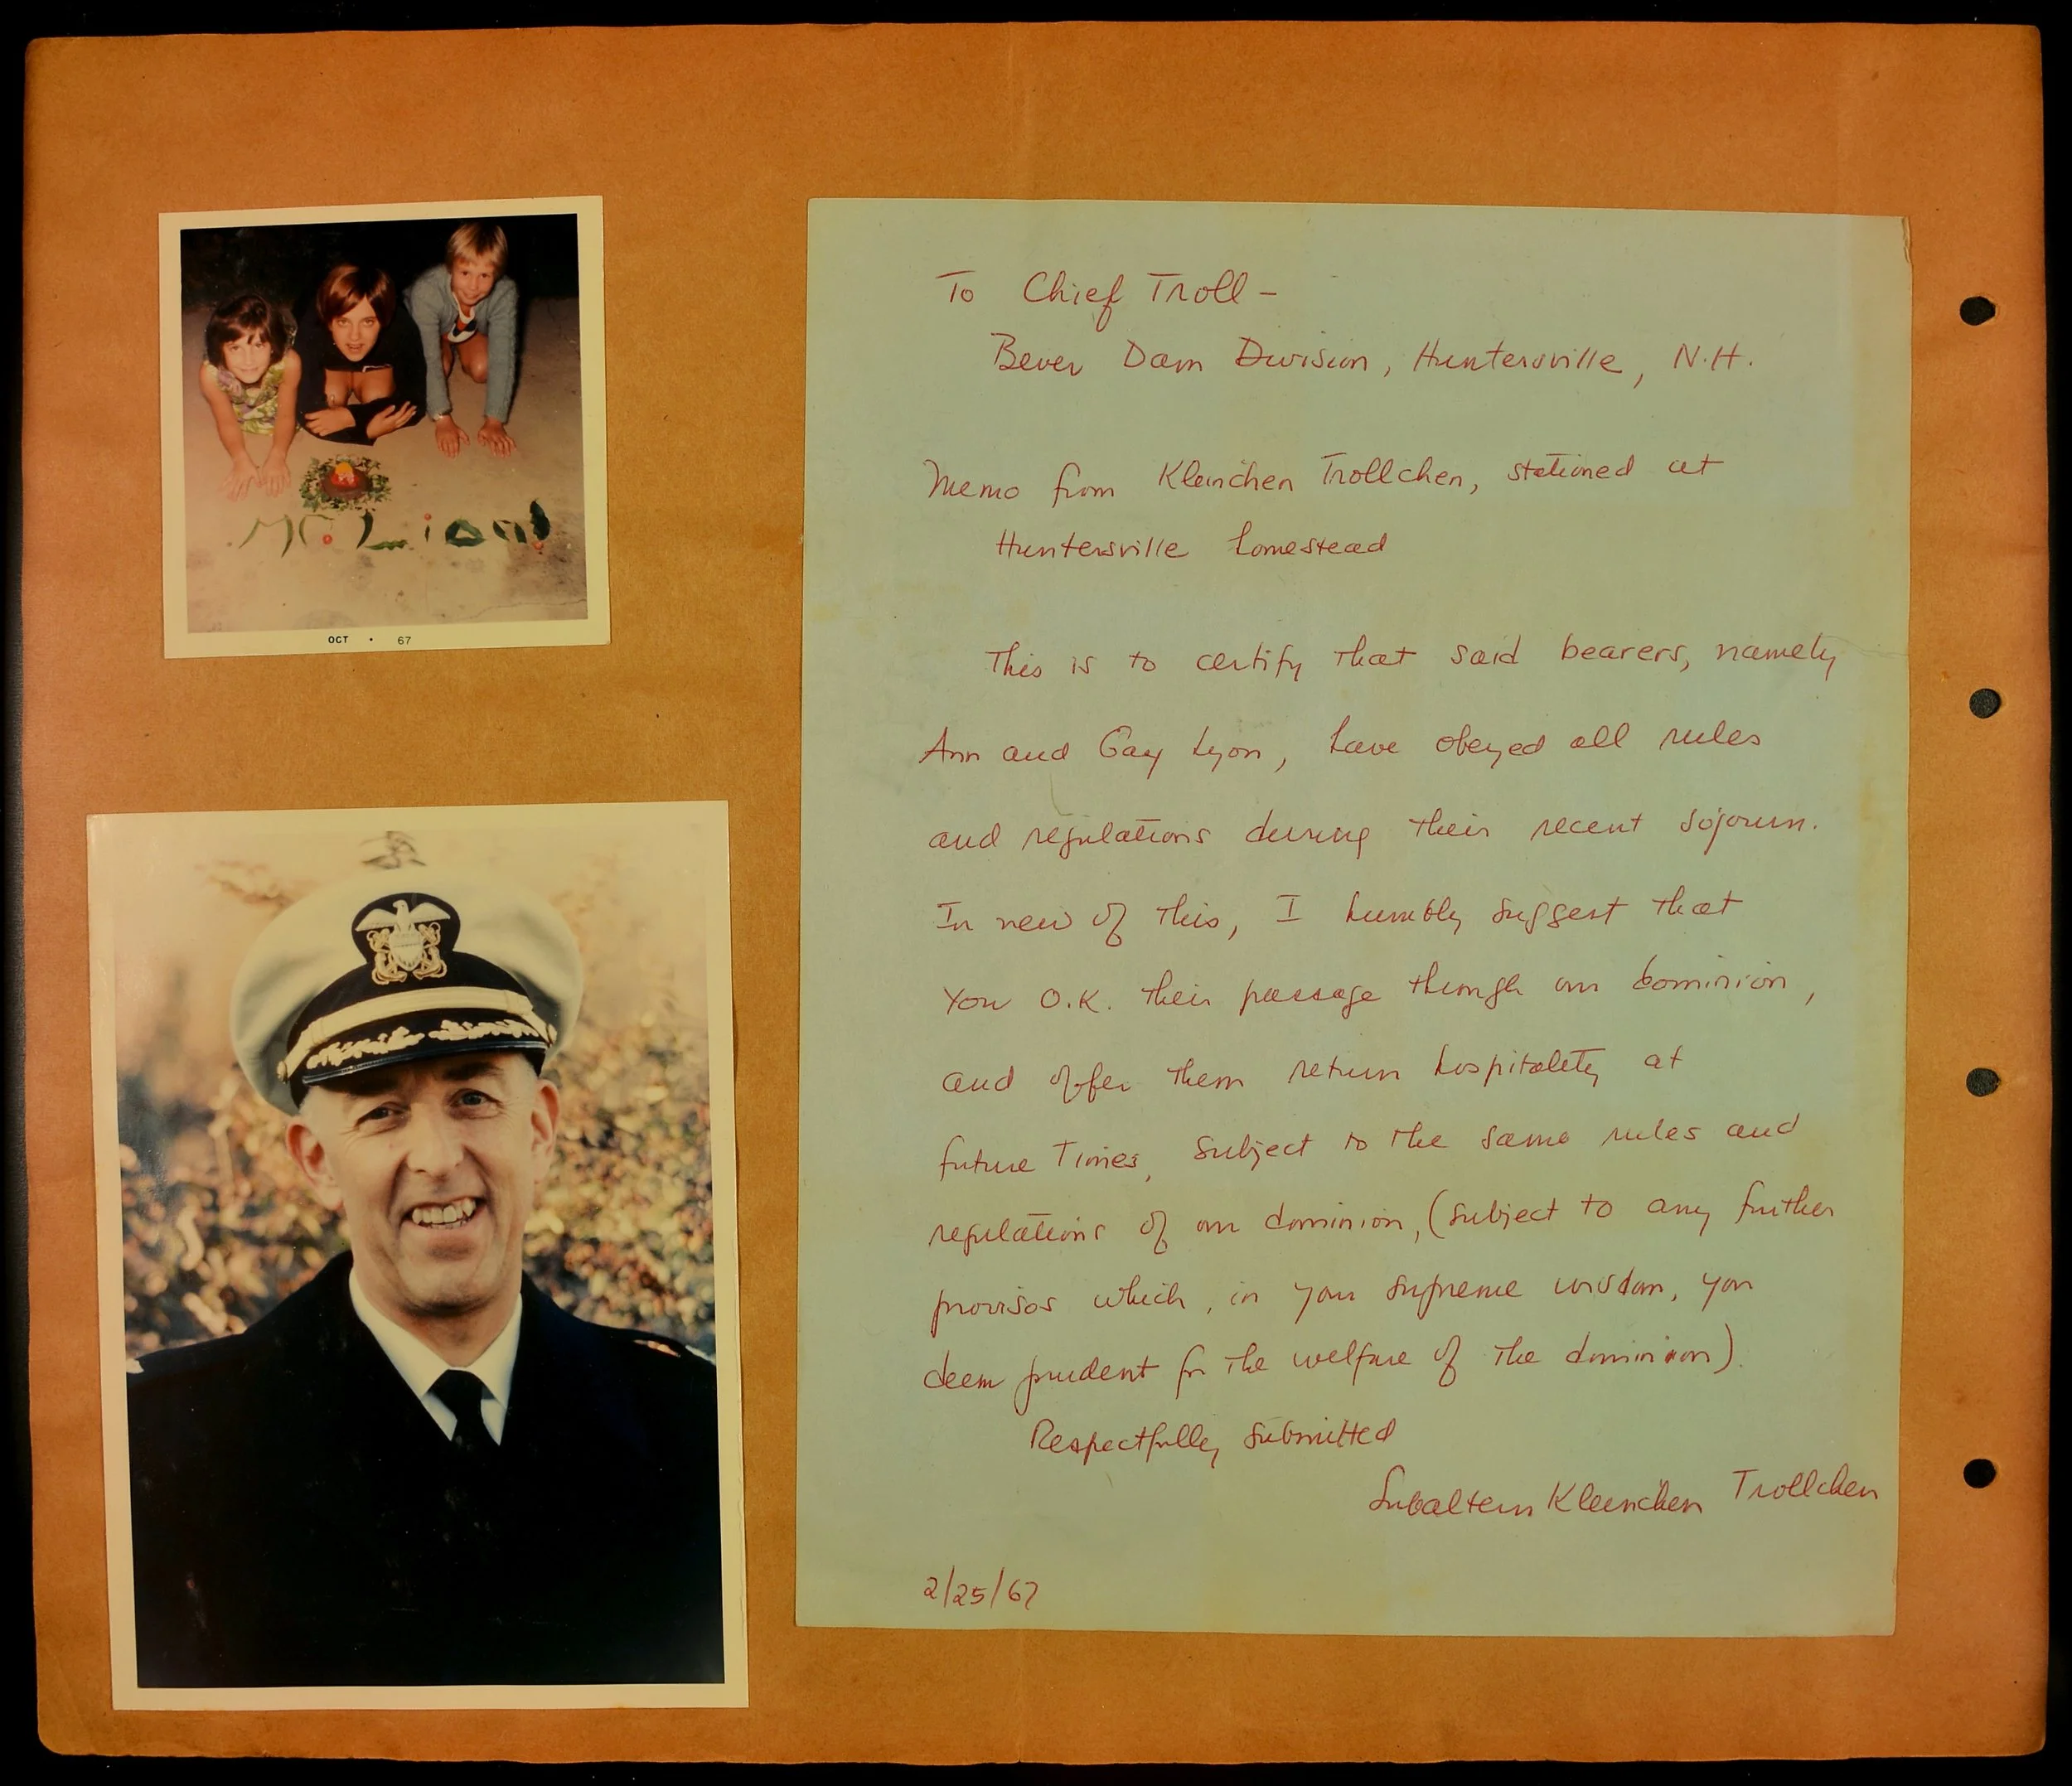 Mr. Lion!
OCT • 67
To Chief Troll -
Bever Dam Division, Huntersville, N.H.
Memo from Kleinchen Trollchen, stationed at
Huntersville homestead
This is to certify that said bearers, namely
Ann and Gay Lyon, have obeyed all rules
and regulations during their recent sojourn.
In view of this, I humbly suggest that
you O.K. their passage through our dominion,
and offer them return hospitality at
future times, subject to the same rules and
regulations of our dominion, (subject to any further
provisos which, in your supreme wisdom, you
deem prudent for the welfare of the dominion).
Respectfully submitted
Subaltern Kleinchen Trollchen
2/25/67